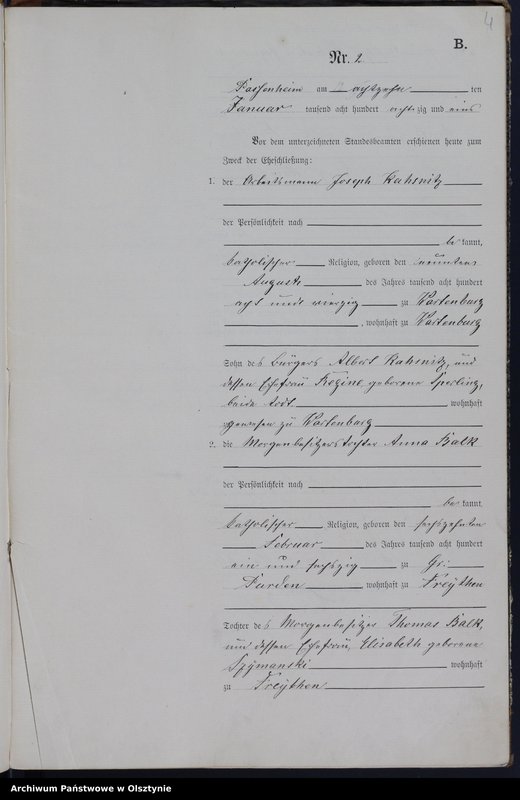 4
B.
Nr. 2
Passenheim am achtzehn ten
Januar tausend acht hundert acht zig und eins
Vor dem unterzeichneten Standesbeamten erschienen heute zum
Zweck der Eheschließung:
1. der Arbeitsmann Joseph Kahsnitz
der Persönlichkeit nach
be kannt,
katholischer Religion, geboren den neunten
August des Jahres tausend acht hundert
acht und vierzig zu Wartenburg
, wohnhaft zu Wartenburg
Sohn des Bürgers Albert Kahsnitz, und
dessen Ehefrau Regine geborene Sperling,
beide todt wohnhaft
gewesen zu Wartenburg
2. die Morgenbesitzerstochter Anna Balk
der Persönlichkeit nach
be kannt,
katholischer Religion, geboren den sechszehnten
Februar des Jahres tausend acht hundert
ein und sechszig zu Gr.
Purden wohnhaft zu Freythen
Tochter des Morgenbesitzer Thomas Balk,
und dessen Ehefrau, Elisabeth geborene
Szymanski wohnhaft
zu Freythen
Archiwum Państwowe w Olsztynie